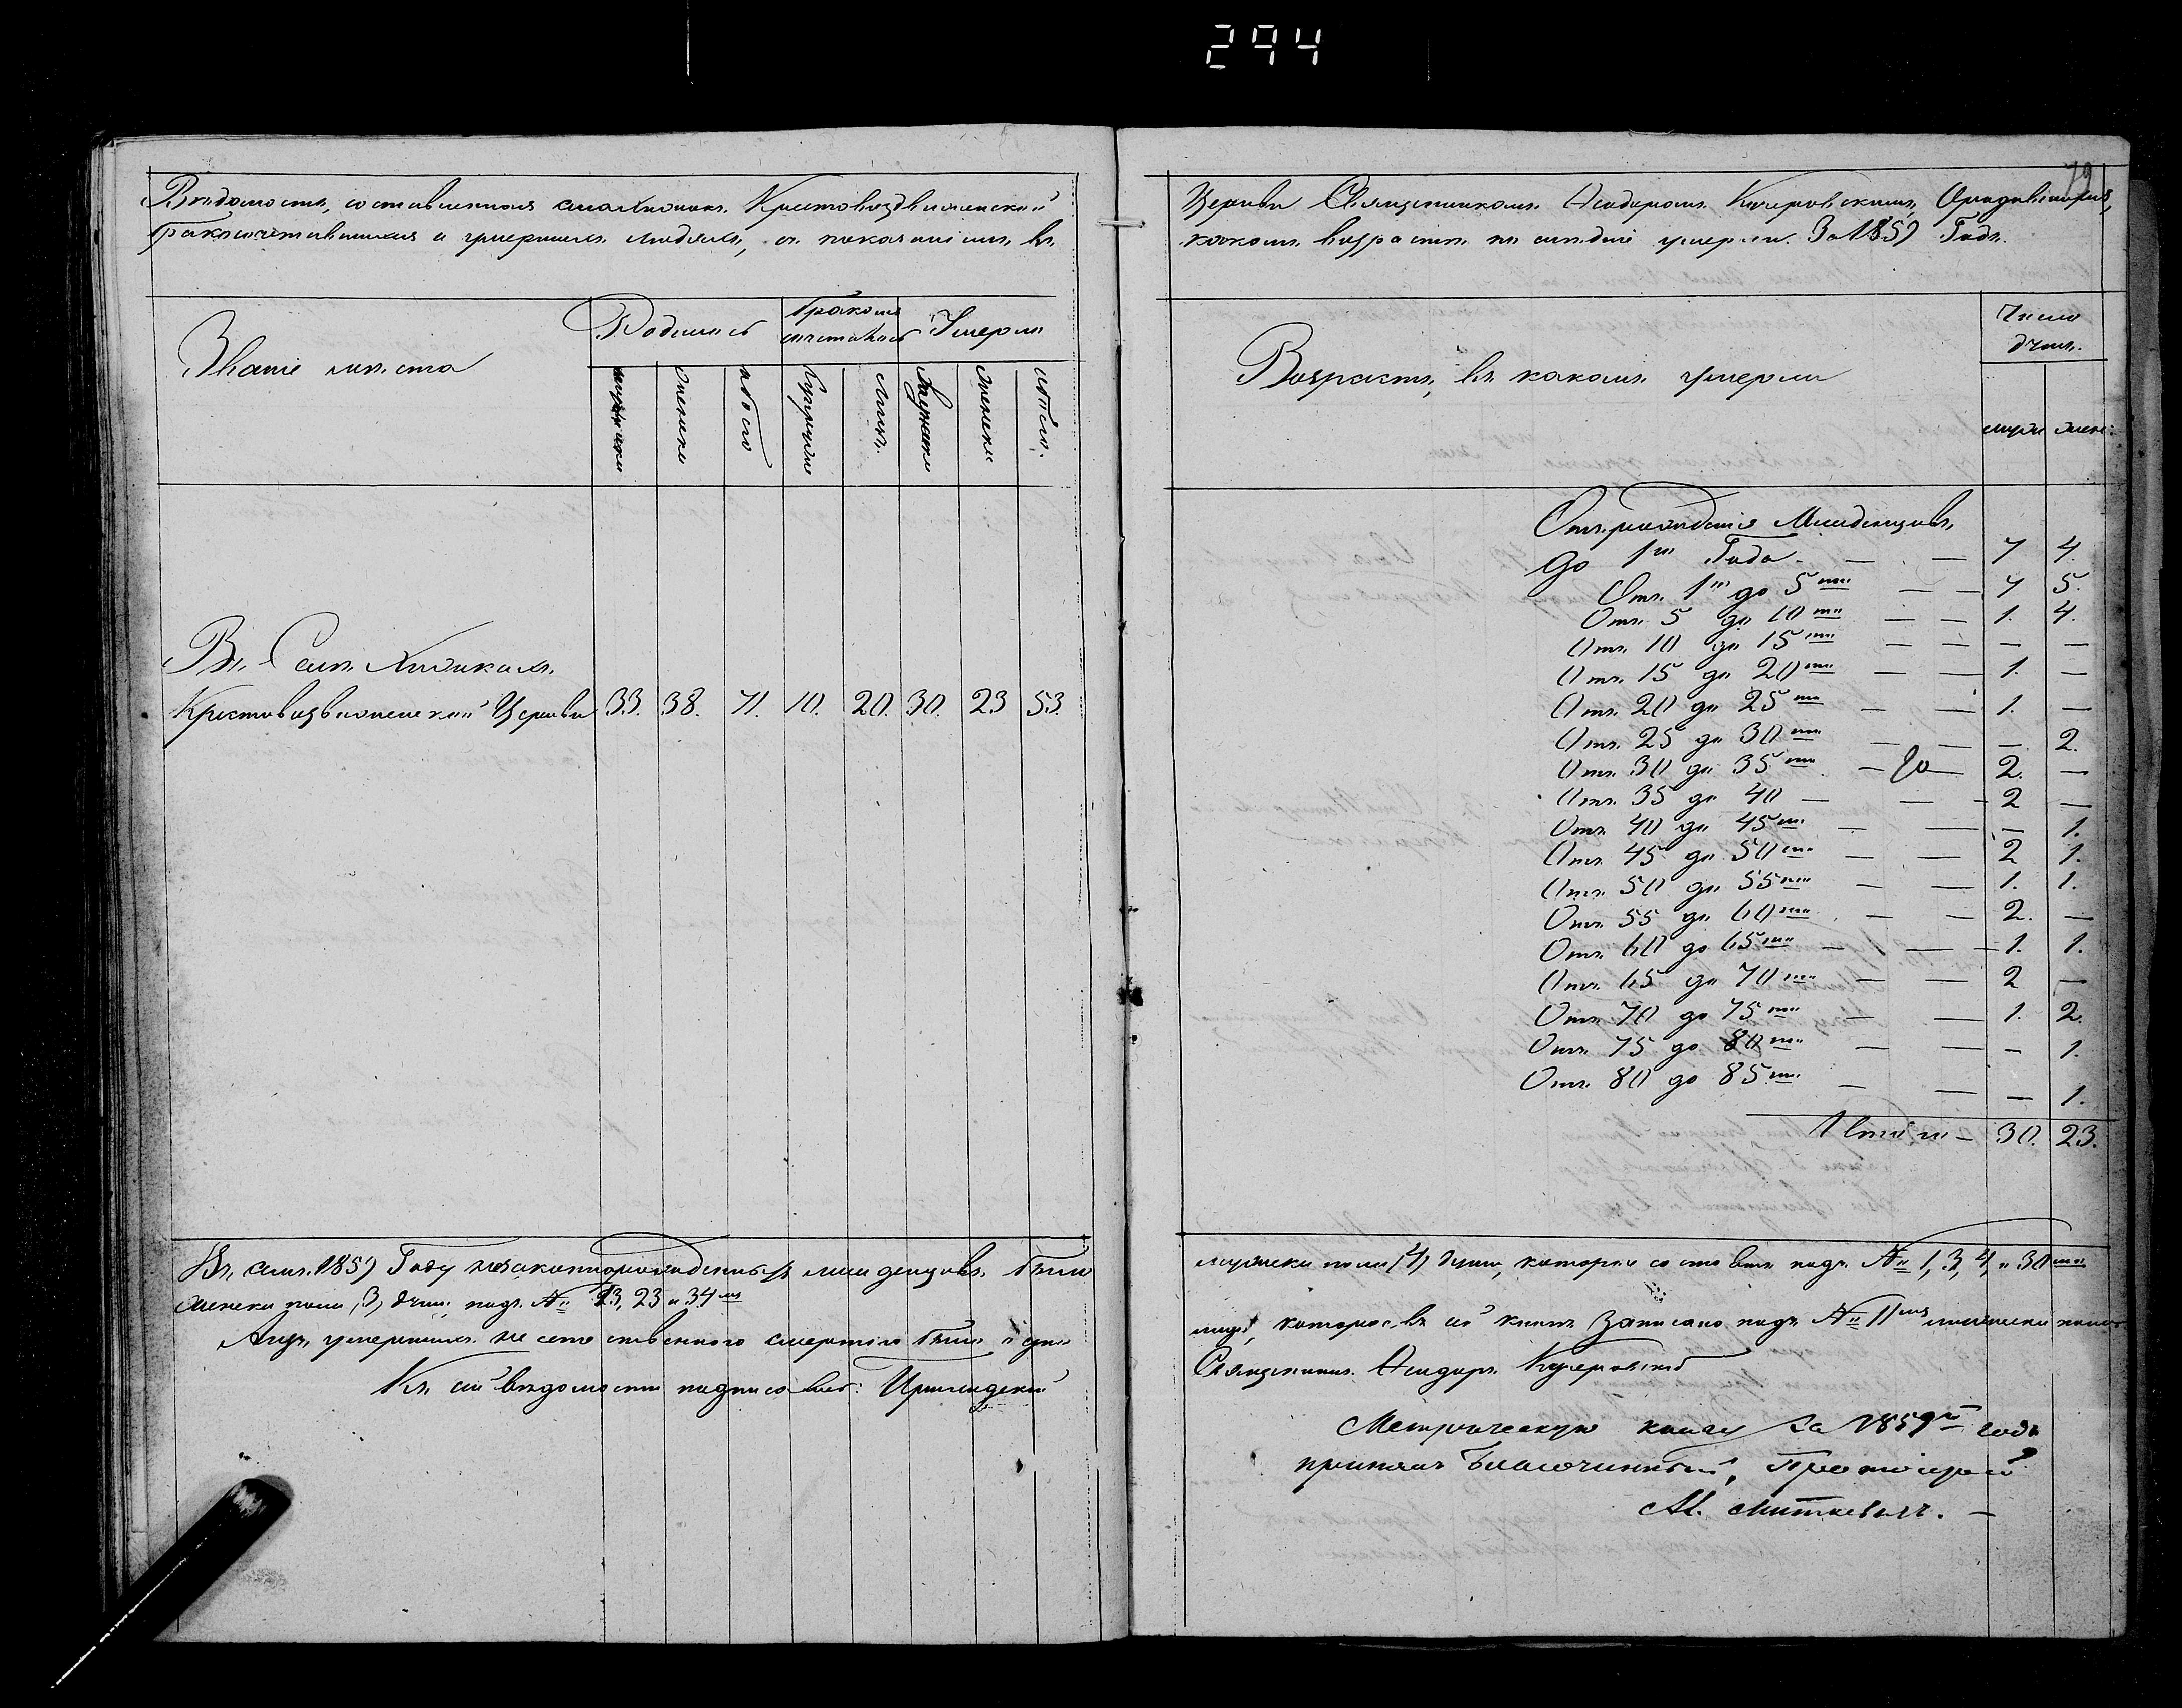 294
79
Вѣдомость, составленная Крестовоздвиженской
бракосочетавшихся и умершихъ людяхъ, съ показаніемъ, въ
Званіе мѣста
Родилось
бракомъ сочеталось
Умерло
мужеска
женска
обоего
Супруже
Лицъ.
Мужска
женска
обоего.
Въ Селѣ
Крестовоздвиженской Церкви 33. 38. 71. 10. 20. 30. 23 53.
Въ семъ 1859 Году незаконнорожденныхъ младенцовъ было
женска пола (3) души подъ № 13, 23 и 34
умершихъ не естественного смертію было
Къ сей вѣдомости подписался:
Церкви Священникомъ Исидоромъ Кучеровскимъ,
какомъ возрастѣ умерли. За 1859 Годъ.
Возрастъ, въ какомъ умерли
Число душъ.
муже женс:
Отъ рожденія Младенцовъ,
до 1го Года — — 7 4.
Отъ 1го до 5ти — — 7 5.
Отъ 5 до 10ти — — 1. 4.
Отъ 10 до 15ти — — — —
Отъ 15 до 20ти — — 1. —
Отъ 20 до 25ти — — 1. —
Отъ 25 до 30ти — — — 2.
Отъ 30 до 35ти — до — 2. —
Отъ 35 до 40 — — 2 —
Отъ 40 до 45ти — — — 1.
Отъ 45 до 50ти — — 2 1.
Отъ 50 до 55ти — — 1. 1.
Отъ 55 до 60ти — — 2. —
Отъ 60 до 65ти — — 1. 1.
Отъ 65 до 70ти — — 2 —
Отъ 70 до 75ти — — 1. 2.
Отъ 75 до 80ти — — — 1.
Отъ 80 до 85ти — — — 1.
Итого — 30. 23.
мужеска пола (4) души, которіи подъ № 1, 3, 4, и 30ти
лице, которое въ сей книгѣ записано подъ № 11мъ
Священникъ Исидоръ Кучеровскій
Метрическую книгу за 1859й годъ
принялъ Благочинный, Протоіерей
М. Миткевичъ. —